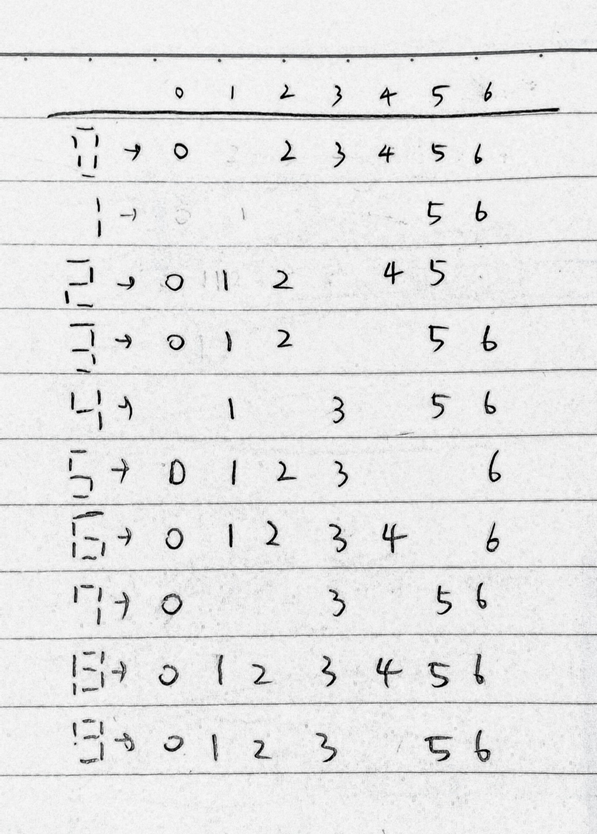 0 1 2 3 4 5 6
0 → 0 2 3 4 5 6
1 → 5 6
2 → 0 1 2 4 5
3 → 0 1 2 5 6
4 → 1 3 5 6
5 → 0 1 2 3 6
6 → 0 1 2 3 4 6
7 → 0 3 5 6
8 → 0 1 2 3 4 5 6
9 → 0 1 2 3 5 6